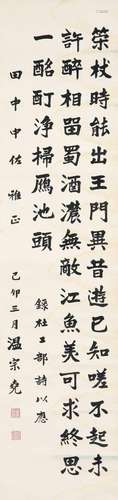 筞杖時能出王門異昔遊已知嗟不起未
許醉相畱蜀酒濃無敵江魚美可求終思
一酩酊浄掃鴈池頭
錄杜工部詩以應
田中申佐雅正
己卯三月溫宗堯